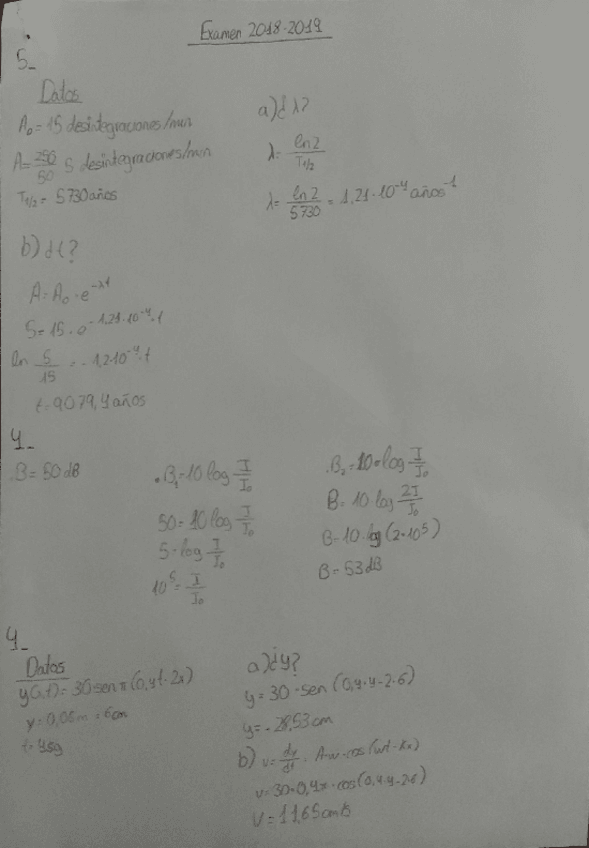 Examen 2018-2019
5_
Datos
A₀ = 15 desintegraciones/min
A = 250/50 5 desintegraciones/min
T1/2 = 5730 años
a) ¿λ?
λ = ln 2 / T1/2
λ = ln 2 / 5730 = 1,21·10⁻⁴ años⁻¹
b) ¿t?
A = A₀ · e^-λt
5 = 15 · e^-1,21·10⁻⁴·t
ln 5/15 = -1,2·10⁻⁴·t
t = 9079,4 años
4_
B = 50 dB
B₁ = 10 log I/I₀
50 = 10 log I/I₀
5 = log I/I₀
10⁵ = I/I₀
B₂ = 10 · log I/I₀
B = 10 · log 2I/I₀
B = 10 · log (2·10⁵)
B = 53 dB
4_
Datos
y(x,t) = 30·sen π (0,4t - 2x)
y = 0,06m = 6cm
t = 4sg
a) ¿y?
y = 30 · sen (0,4·4 - 2·6)
y = -28,53 cm
b) v = dy/dt = A·w·cos (wt - kx)
v = 30·0,4π · cos (0,4·4 - 2·6)
V = 11,65 cm/s